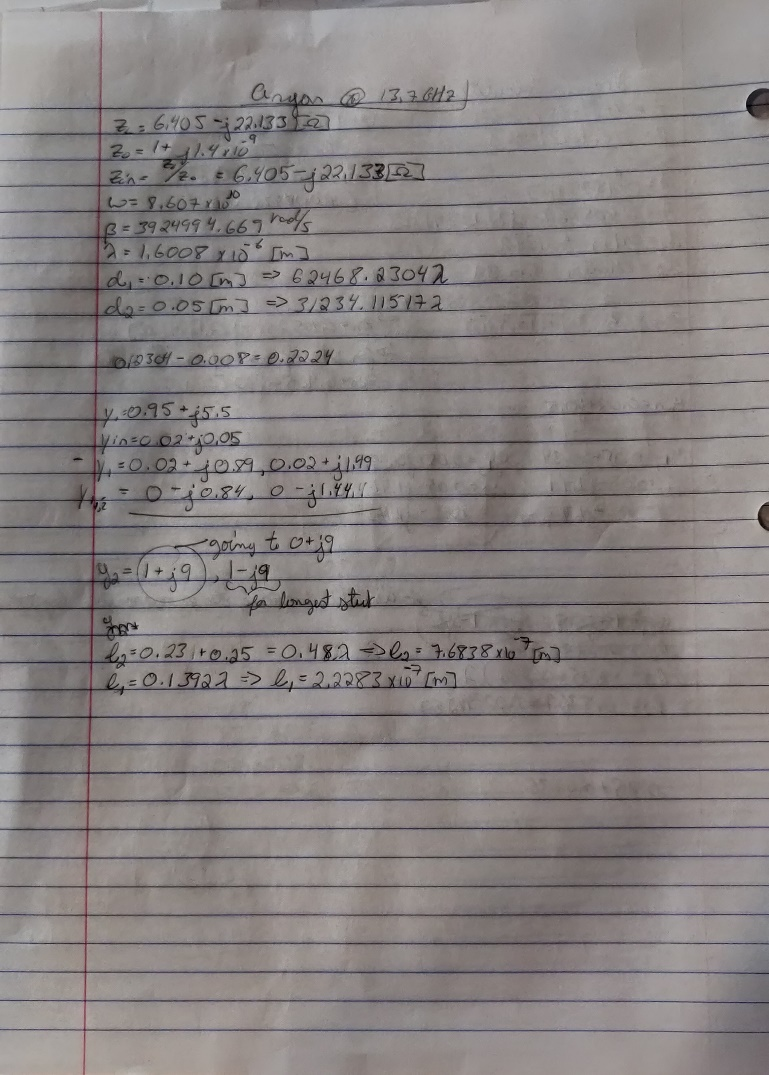 Argon @ 13.7GHz
Z_L = 6.405 - j22.133 [Ω]
Z_0 = 1 + j1.4x10^-9
Z_in = Z_L/Z_0 = 6.405 - j22.133 [Ω]
ω = 8.607x10^10
β = 3924994.669 rad/s
λ = 1.6008 x10^-6 [m]
d_1 = 0.10 [m] => 62468.2304λ
d_2 = 0.05 [m] => 31234.11517λ
0.2304 - 0.008 = 0.2224
y_1 = 0.95 + j5.5
y_in = 0.02 + j0.05
- y_1 = 0.02 + j0.89, 0.02 + j1.99
= 0 - j0.84, 0 - j1.44
going to 0 + j9
y_2 = 1 + j9, 1 - j9
for longest stub
l_2 = 0.231 + 0.25 = 0.48λ => l_2 = 7.6838x10^-7 [m]
l_1 = 0.1392λ => l_1 = 2.2283x10^-7 [m]